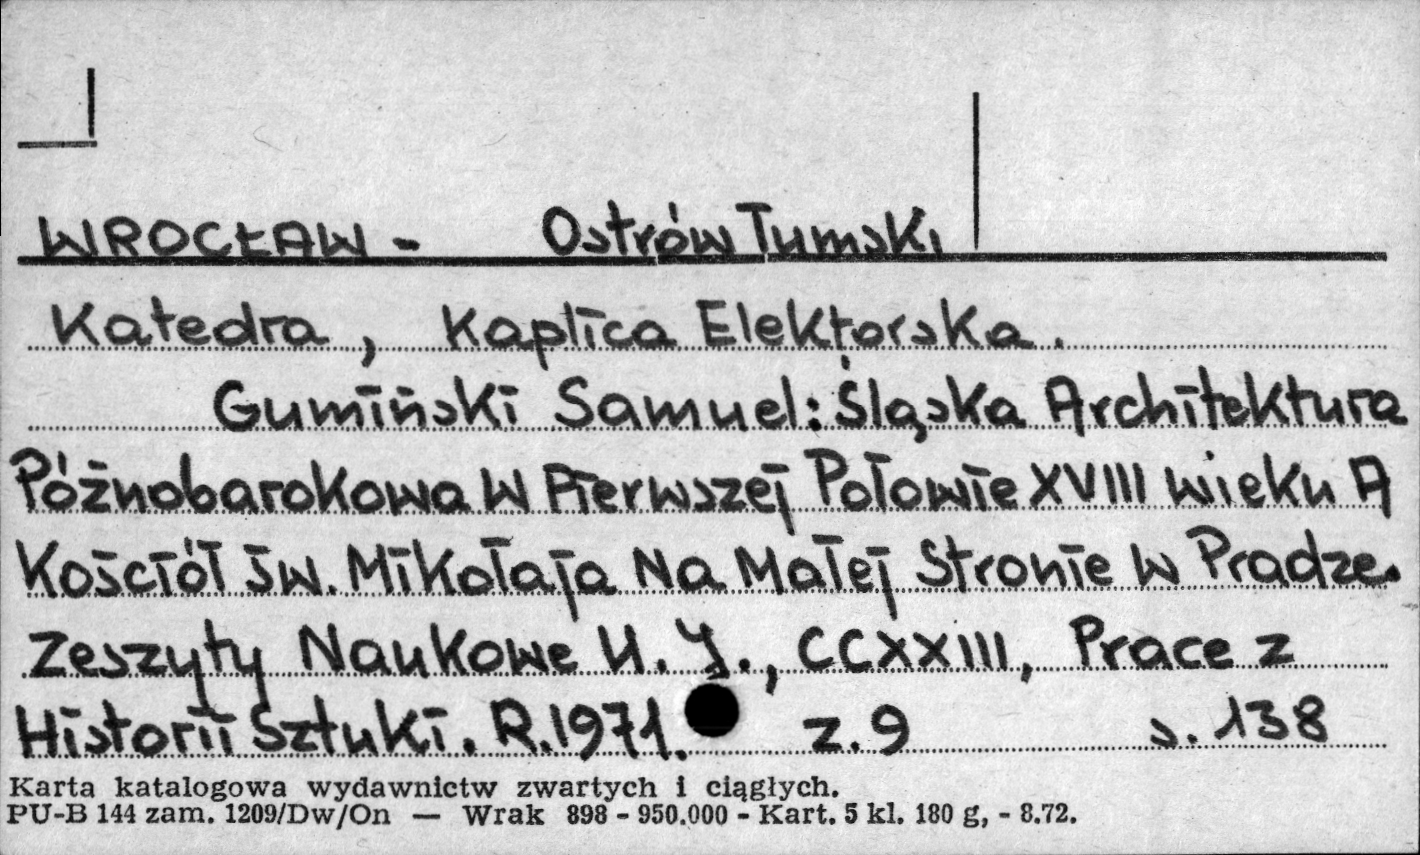 WROCŁAW - Ostrów Tumski
Katedra, Kaplica Elektorska.
Gumiński Samuel: Śląska Architektura
Późnobarokowa W Pierwszej Połowie XVIII wieku A
Kościół Św. Mikołaja Na Małej Stronie W Pradze.
Zeszyty Naukowe U. J., CCXXIII, Prace z
Historii Sztuki. R.1971. z. 9 s. 138
Karta katalogowa wydawnictw zwartych i ciągłych.
PU-B 144 zam. 1209/Dw/On — Wrak 898 - 950.000 - Kart. 5 kl. 180 g, - 8.72.